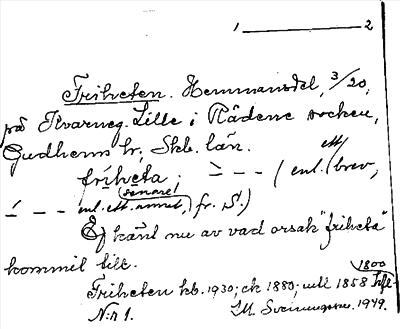 1 ———— 2
Friheten. Hemmansdel, 3/20,
på Kvarneg. Lille i Rådene socken,
Gudhems hr, Skb. län.
fríheta. – – – / enl. ett brev,
– – – enl. ett annat, (senare) fr. S.)
Ej känt nu av vad orsak "friheta"
kommit till.
Friheten kb. 1930; ck 1880; 1858 1800
N:r 1. 1949.